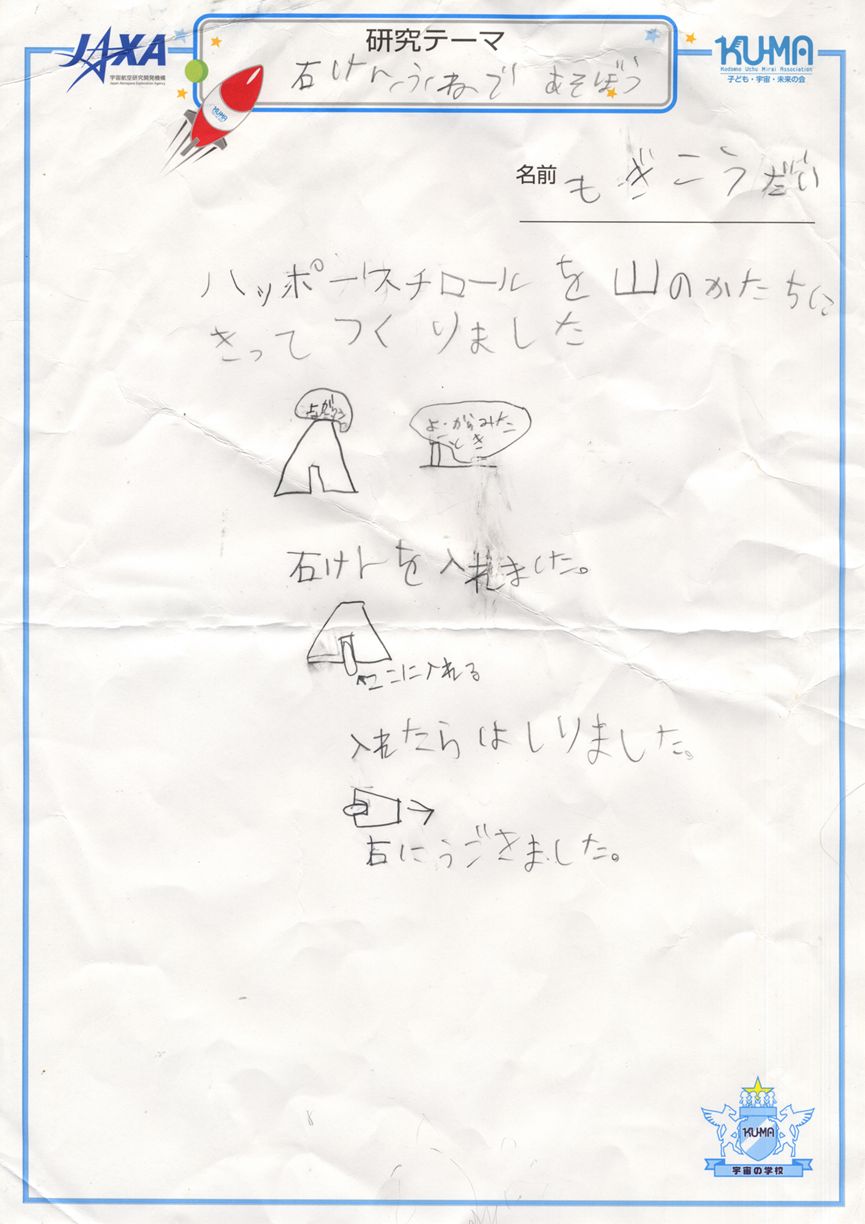 JAXA
宇宙航空研究開発機構
Japan Aerospace Exploration Agency
研究テーマ
石けんふねで あそぼう
KU-MA
Kodomo Uchu Mirai Association
子ども・宇宙・未来の会
KU-MA
名前 もぎこうだい
ハッポースチロールを山のかたちに
きってつくりました
よこからみた
とき
石けんを入れました。
ここに入れる
入れたらはしりました。
右にうごきました。
KU-MA
宇宙の学校